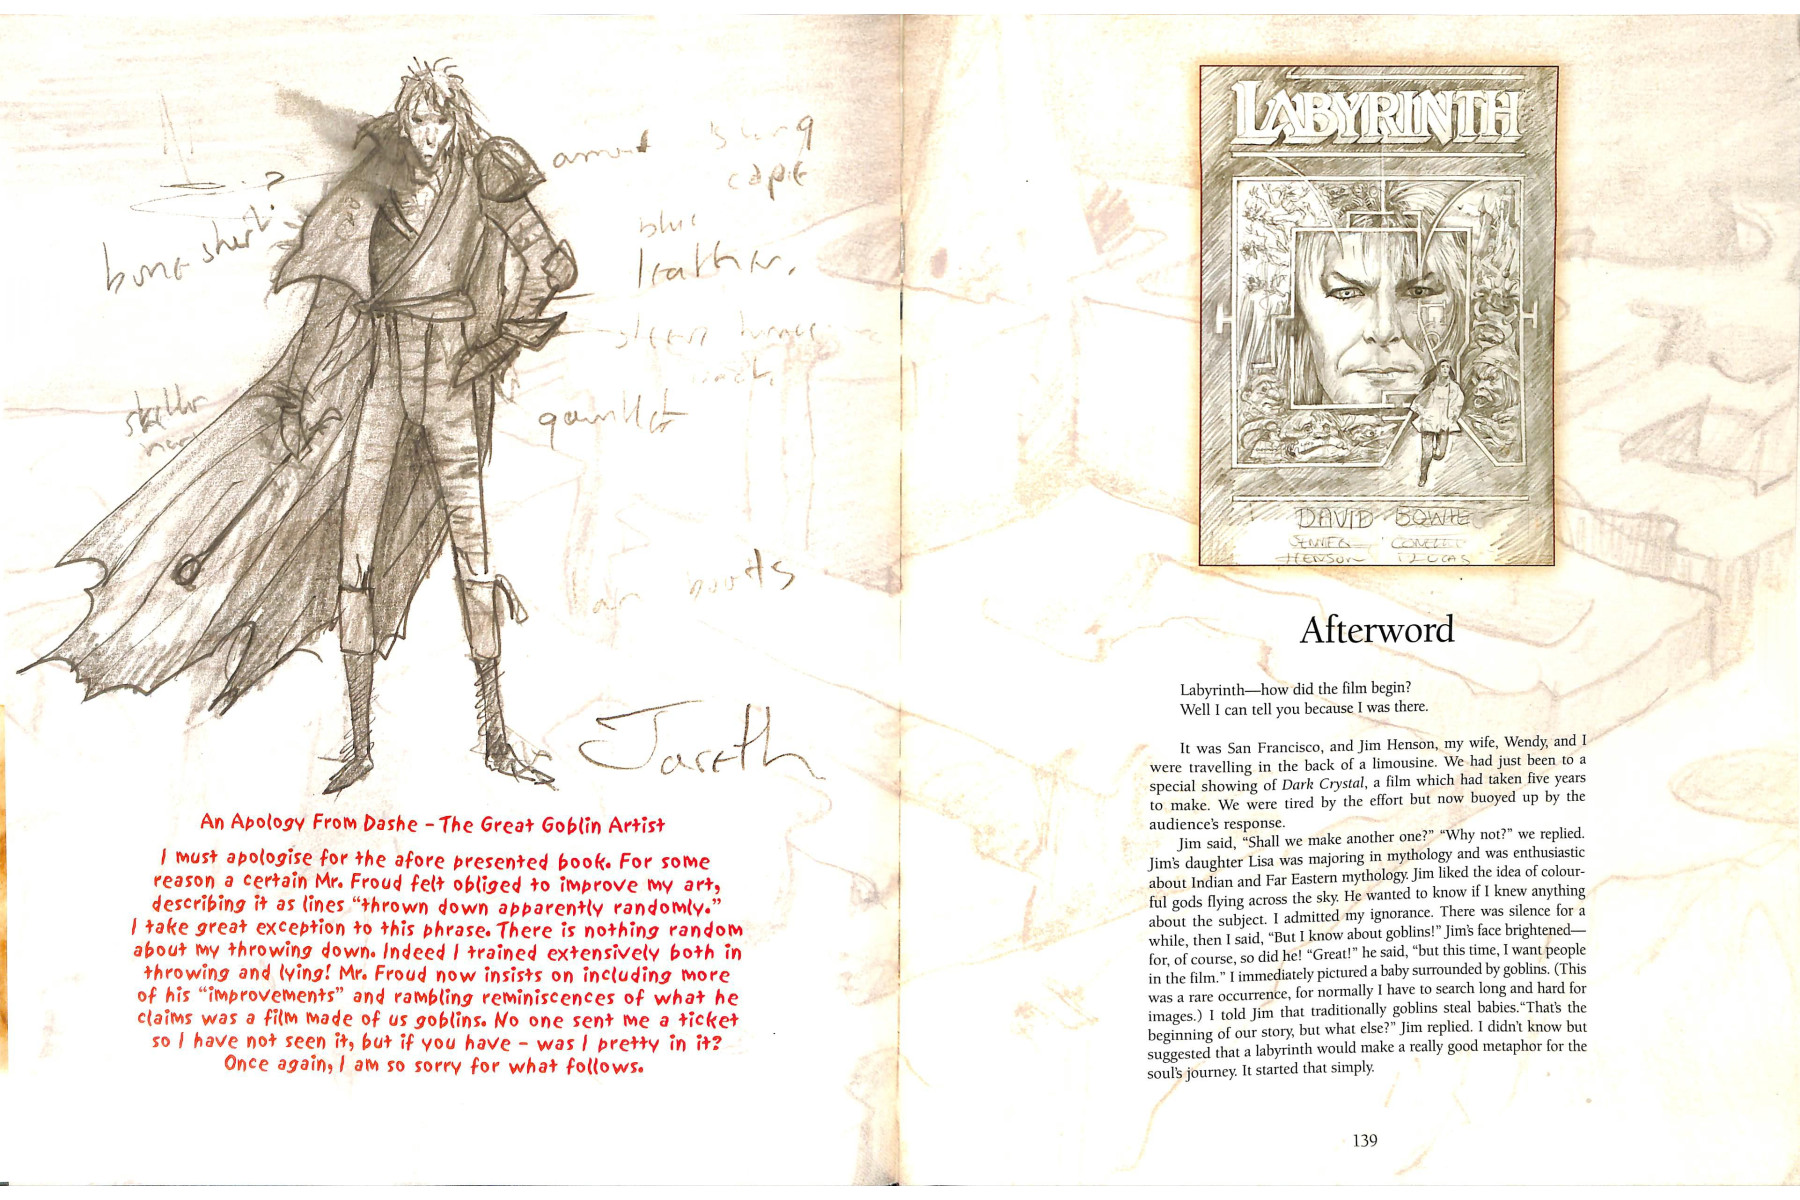 armour
slung
cape
bone shirt?
blue
leather.
gauntlet
boots
Jareth
An Apology From Dashe – The Great Goblin Artist
I must apologise for the afore presented book. For some
reason a certain Mr. Froud felt obliged to improve my art,
describing it as lines “thrown down apparently randomly.”
I take great exception to this phrase. There is nothing random
about my throwing down. Indeed I trained extensively both in
throwing and lying! Mr. Froud now insists on including more
of his “improvements” and rambling reminiscences of what he
claims was a film made of us goblins. No one sent me a ticket
so I have not seen it, but if you have – was I pretty in it?
Once again, I am so sorry for what follows.
LABYRINTH
DAVID BOWIE
HENSON LUCAS
Afterword
Labyrinth—how did the film begin?
Well I can tell you because I was there.
It was San Francisco, and Jim Henson, my wife, Wendy, and I
were travelling in the back of a limousine. We had just been to a
special showing of Dark Crystal, a film which had taken five years
to make. We were tired by the effort but now buoyed up by the
audience’s response.
Jim said, “Shall we make another one?” “Why not?” we replied.
Jim’s daughter Lisa was majoring in mythology and was enthusiastic
about Indian and Far Eastern mythology. Jim liked the idea of colour-
ful gods flying across the sky. He wanted to know if I knew anything
about the subject. I admitted my ignorance. There was silence for a
while, then I said, “But I know about goblins!” Jim’s face brightened—
for, of course, so did he! “Great!” he said, “but this time, I want people
in the film.” I immediately pictured a baby surrounded by goblins. (This
was a rare occurrence, for normally I have to search long and hard for
images.) I told Jim that traditionally goblins steal babies.“That’s the
beginning of our story, but what else?” Jim replied. I didn’t know but
suggested that a labyrinth would make a really good metaphor for the
soul’s journey. It started that simply.
139